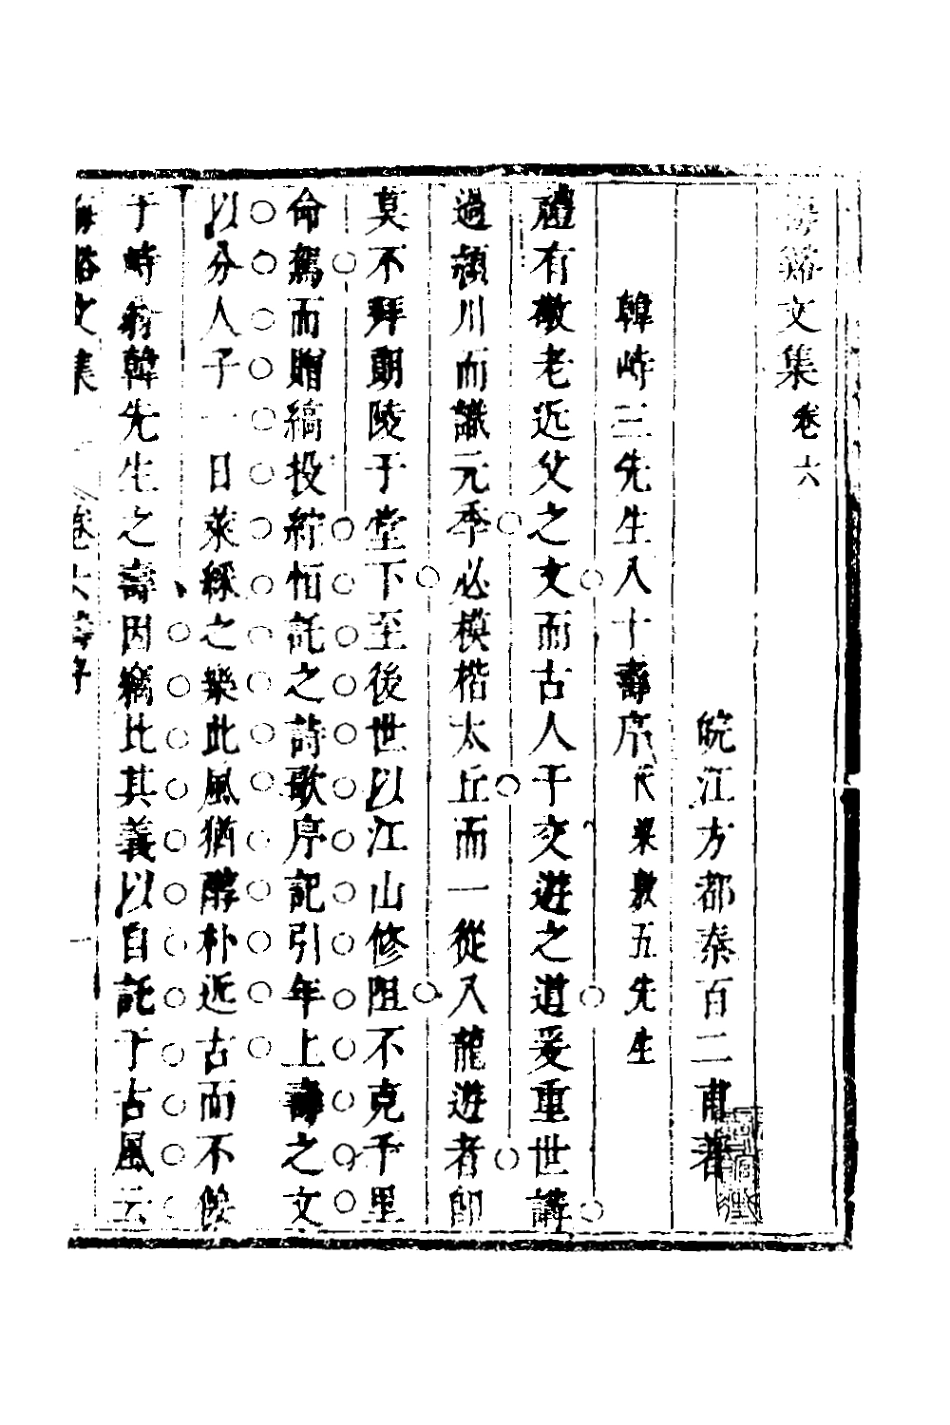 文集卷六
皖江方都秦百二甫著
韓峙三先生八十壽序代梁敷五先生
禮有敬老近父之文而古人于交遊之道爰重世講
過潁川而識元季必模楷太丘而一從入龍遊者卽
莫不拜朗陵于堂下至後世以江山修阻不克千里
命駕而贈縞投紵怕託之詩歌序記引年上壽之文
以分人子一日萊綵之樂此風猶醇朴近古而不倏
于峙翁韓先生之壽因竊比其義以自託于古風云
文集 卷六壽序 一